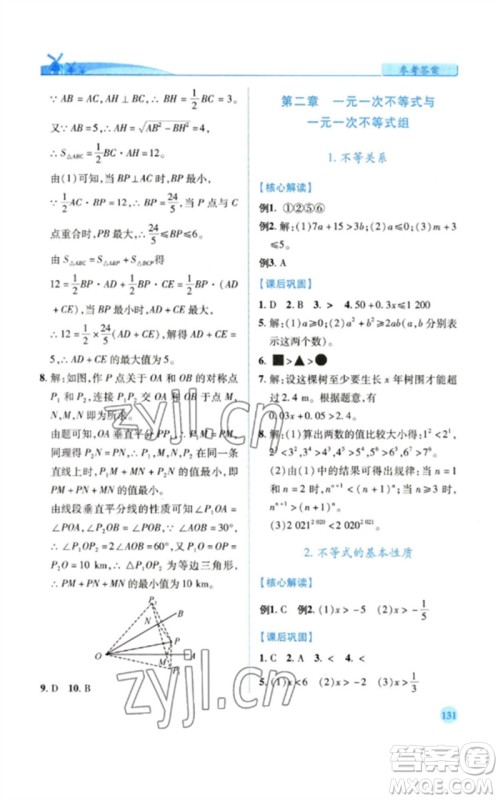 参考答案
∵AB=AC,AH⊥BC,∴BH=1/2BC=3.
又∵AB=5,∴AH=√(AB²-BH²)=4.
∴S△ABC=1/2BC·AH=12.
由(1)可知,当BP⊥AC时,BP最小,
∴1/2AC·BP=12,∴BP=24/5.当P点与C
点重合时,PB最大,∴24/5≤BP≤6.
由(2)可知S△ABC=S△ABP+S△BCP,所以
12=1/2BP·AD+1/2BP·CE=1/2BP(AD+CE),
∴12=1/2×24/5(AD+CE),
解得AD+CE=5.
∴AD+CE的最大值为5.
8.解:如图,作P点关于OA和OB的对称点
P₁和P₂,连接P₁P₂,交OA和OB于点
M,N,则M,N即为所求.
由题可知,OA垂直平分P₁P,∴P₁M=PM,
同理得P₂N=PN,∵P₁,M,N,P₂在同一条
直线上时,P₁M+MN+P₂N的值最小,即
PM+MN+PN的值最小.
连接OP,OP₁,OP₂,
根据线段垂直平分线的性质可得OP₁=OP₂=
OP,∠P₁OP₂=2∠AOB=60°,又∵OP₁=
OP₂=10 km,∴△P₁OP₂为等边三角形,
∴PM+PN+MN的最小值为10 km.
P₂
B
N
P
O
M
A
P₁
9.D 10.B
第二章 一元一次不等式与
一元一次不等式组
1.不等关系
【核心解读】
例1.①②⑤⑥
例2.解:(1)7a+15>3b;(2)a≤0;(3)m
≤5.
例3.A
【课后巩固】
1.D 2.B 3.> 4.50+0.3x≤1 200
5.解:(1)a≥0;(2)a²+b²≥2ab(a,b分别表
示这两个数).
6.■▲●
7.解:设这棵树至少要生长x年树围才能超
过2.4 m.根据题意,得
0.03x+0.05>2.4.
8.解:(1)算出两数的值比较大小:1²<2¹,
2³<3²,3⁴>4³,4⁵>5⁴;
(2)由(1)的结果可得出规律:当n≥3时,
nⁿ⁺¹>(n+1)ⁿ;
(3)2 021² ⁰²⁰<2 020² ⁰²¹
2.不等式的基本性质
【核心解读】
例1.C 例2.(1)x>-5 (2)x>-1/5
【课后巩固】
1.C 2.A 3.> 4.≤
5.(1)x<3 (2)x>-2 (3)x>1/3
131
zyjl.cn
zyjl.cn